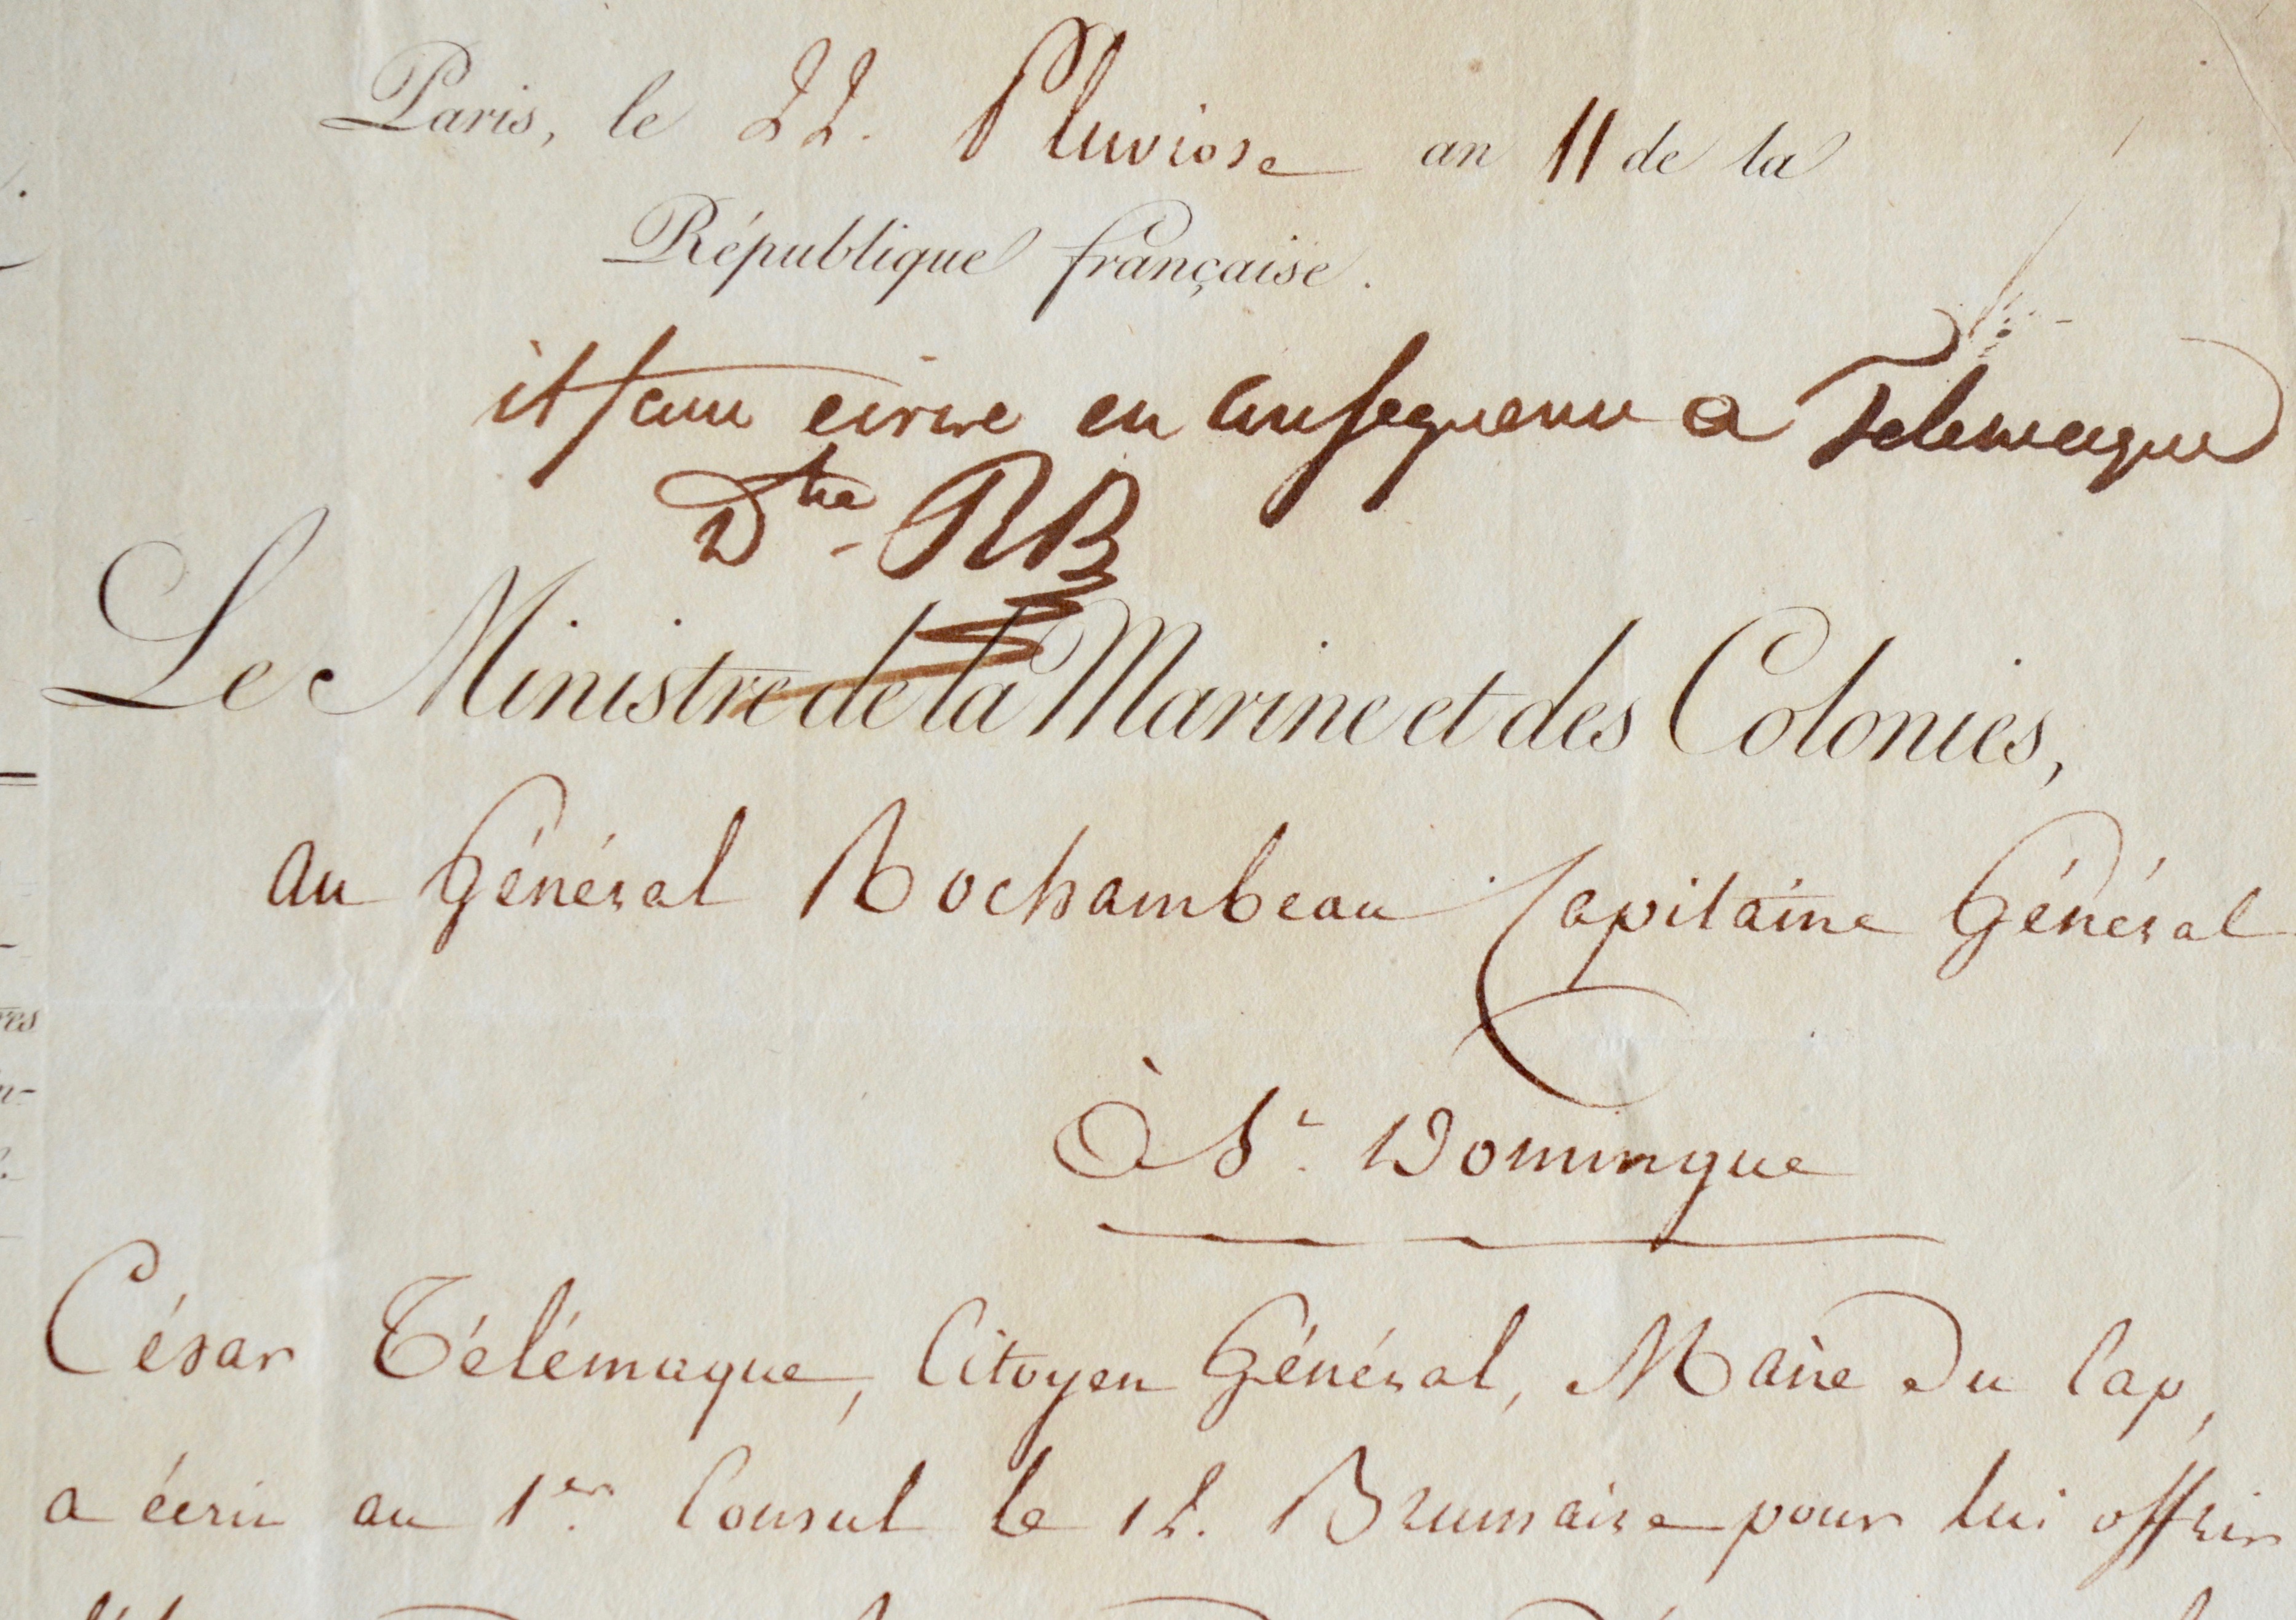 Paris, le 22. Pluviose an 11 de la
République française.
il faut ecrire en consequence a Telemaque
Dte RB
Le Ministre de la Marine et des Colonies,
au Général Rochambeau Capitaine Général
À St. Domingue
César Télémaque, Citoyen Général, Maire du Cap,
a écrit au 1er. Consul le 12. Brumaire pour lui offrir